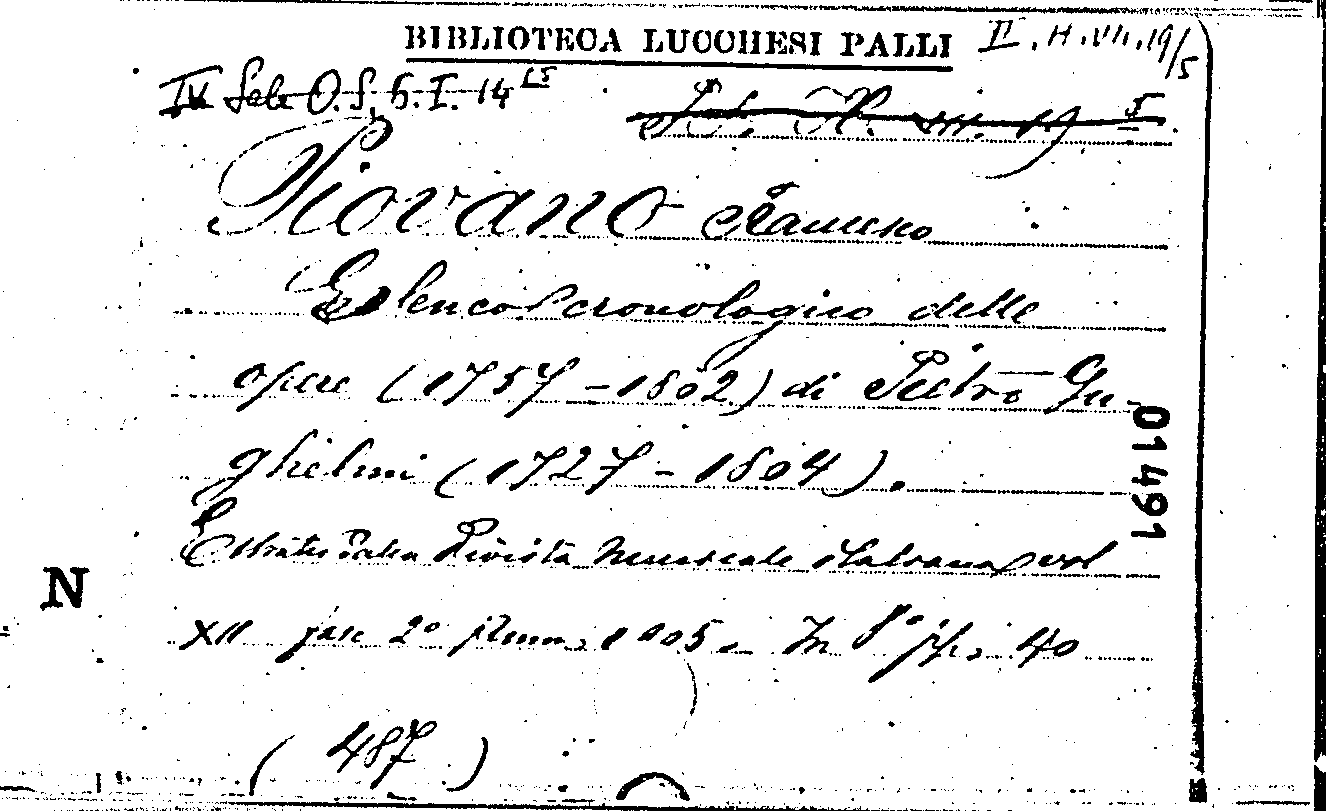 BIBLIOTECA LUCCHESI PALLI II. H. VII. 19/5
IV Sala O. S. 6. I. 14 15
H. VII. 19 5
Piovano Francesco
Elenco cronologico delle
opere (1757-1802) di Pietro Gu-
ghielmi (1727-1804).
Estratto dalla Rivista Musicale italiana vol
XII fasc 2° 1905. In 8° pp. 40
(487)
01491
N